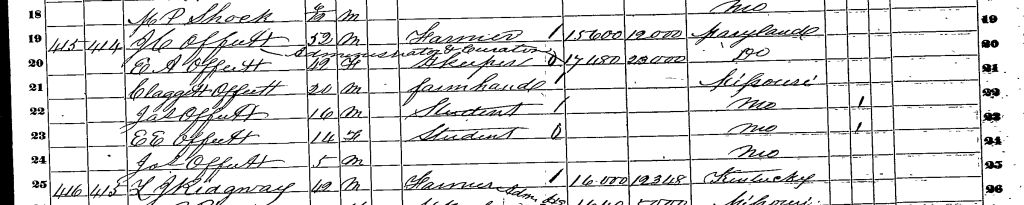 18 M P Shock M Mo 19
19 415 414 Offutt 52 M Farmer 1 15600 12000 Maryland 20
Administrator & Curator
20 E A Offutt 49 F Keeper 0 17480 23000 Do 21
21 Claggett Offutt 20 M farmhand Missouri 22
22 Jas Offutt 16 M Student 1 Mo 1 23
23 E E Offutt 14 F Student 0 Mo 1 24
24 Offutt 5 M Mo 25
25 416 415 L J Ridgway 49 M Farmer 1 16000 12348 Kentucky 26